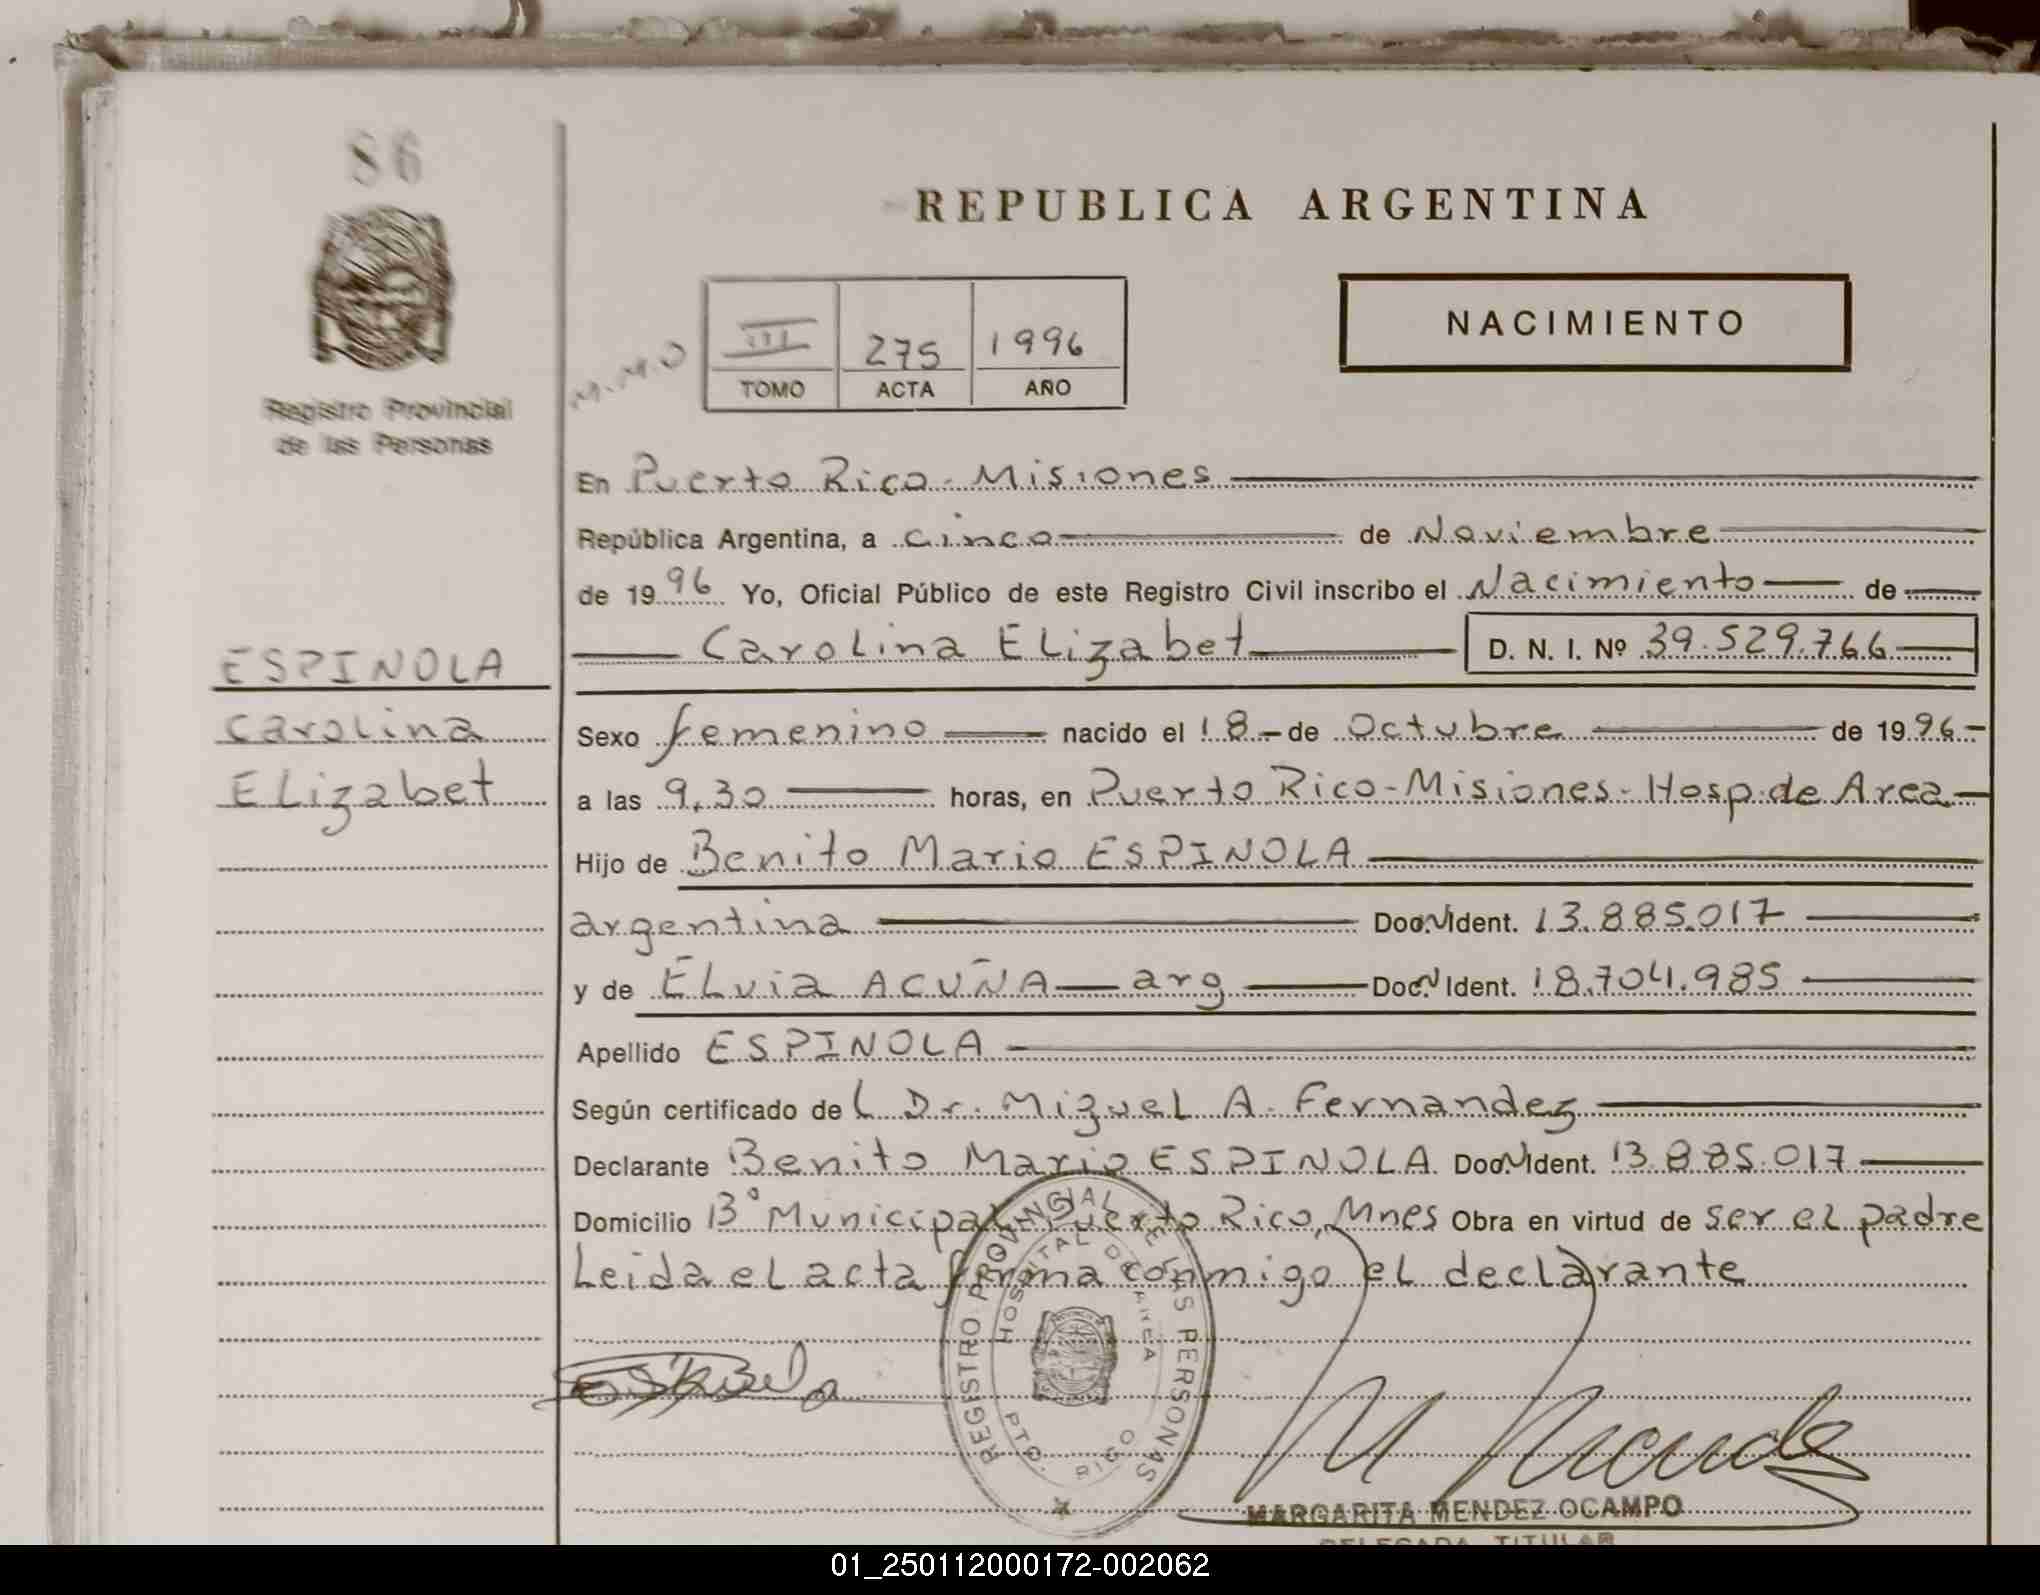 86
REPUBLICA ARGENTINA
NACIMIENTO
M.M.O
III 275 1996
TOMO ACTA AÑO
Registro Provincial
de las Personas
En Puerto Rico - Misiones
República Argentina, a cinco de Noviembre
de 1996 Yo, Oficial Público de este Registro Civil inscribo el Nacimiento de
Carolina Elizabet D. N. I. Nº 39.529.766
ESPINOLA
Carolina
Elizabet
Sexo femenino nacido el 18 - de Octubre de 1996 -
a las 9,30 horas, en Puerto Rico - Misiones - Hosp. de Area
Hijo de Benito Mario ESPINOLA
argentina Doc. Ident. 13.885.017
y de ELvia ACUÑA arg Doc. Ident. 18.704.985
Apellido ESPINOLA
Según certificado del Dr. Miguel A. Fernandez
Declarante Benito Mario ESPINOLA Doc. Ident. 13.885.017
Domicilio Bº Municipal Puerto Rico, Mnes Obra en virtud de ser el padre
Leida el acta firma conmigo el declarante
REGISTRO PROVINCIAL DE LAS PERSONAS
HOSPITAL DE AREA
PTO. RICO
MARGARITA MENDEZ OCAMPO
DELEGADA TITULAR
01_250112000172-002062